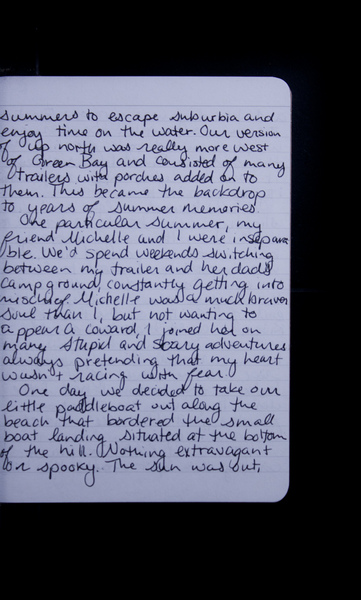 summers to escape suburbia and
enjoy time on the water. Our version
of up north was really more west
of Green Bay and consisted of many
trailers with porches added on to
them. This became the backdrop
to years of summer memories.
One particular summer, my
friend Michelle and I were insepara
ble. We'd spend weekends switching
between my trailer and her dad's
campground, constantly getting into
mischief. Michelle was a much braver
soul than I, but not wanting to
appear a coward, I joined her on
many stupid and scary adventures
always pretending that my heart
wasn't racing with fear.
One day we decided to take our
little paddleboat out along the
beach that bordered the small
boat landing situated at the bottom
of the hill. Nothing extravagant
or spooky. The sun was out,